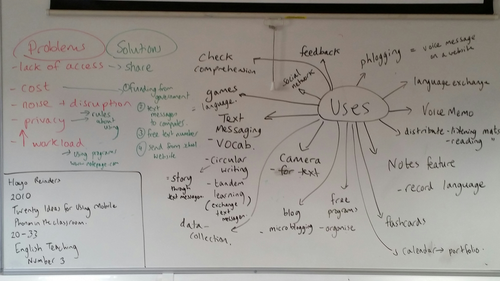 Problems
Solutions
- lack of access -> share
- cost
① funding from government
- noise + disruption
② text messages to computer
- privacy
-> rules about using
③ free text number
↑ workload
④ send from that website
-> using programs
Hayo Reinders
2010
Twenty Ideas for Using Mobile
Phones in the classroom.
20-33
English Teaching
Number 3
Uses
check
comprehension
feedback
social network
phlogging = voice message
on a website
language exchange
Voice Memo
distribute - listening mats
- reading "
Notes feature
- record language
flashcards
calendar -> portfolio.
free
programs
- organise
blog
- microblogging
camera
- for text
games
- language.
Text
Messaging
- VOCAB.
- circular
writing
- tandem
learning
(exchange
text
messages)
story
through
text messages
data -
collection.